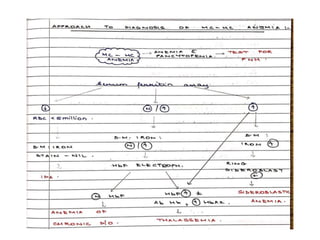 APPROACH TO DIAGNOSIS OF MC-HC ANEMIA :-
MC - HC ANEMIA
ANEMIA C̄ PANCYTOPENIA
TEST FOR PNH.
Serum ferritin assay
↓
N / ↑
↑
RBC < 5 million.
B.M. IRON :
N / ↑
B.M :
IRON ↑
B M : IRON
STAIN - NIL.
HbF ELECTROPH.
RING
SIDEROBLAST
IDA.
N HbF
HbF ↑ &
Ab Hb, ↑ HbA2.
SIDEROBLASTIC
ANEMIA.
ANEMIA OF
CHRONIC D/O.
THALASSEMIA.